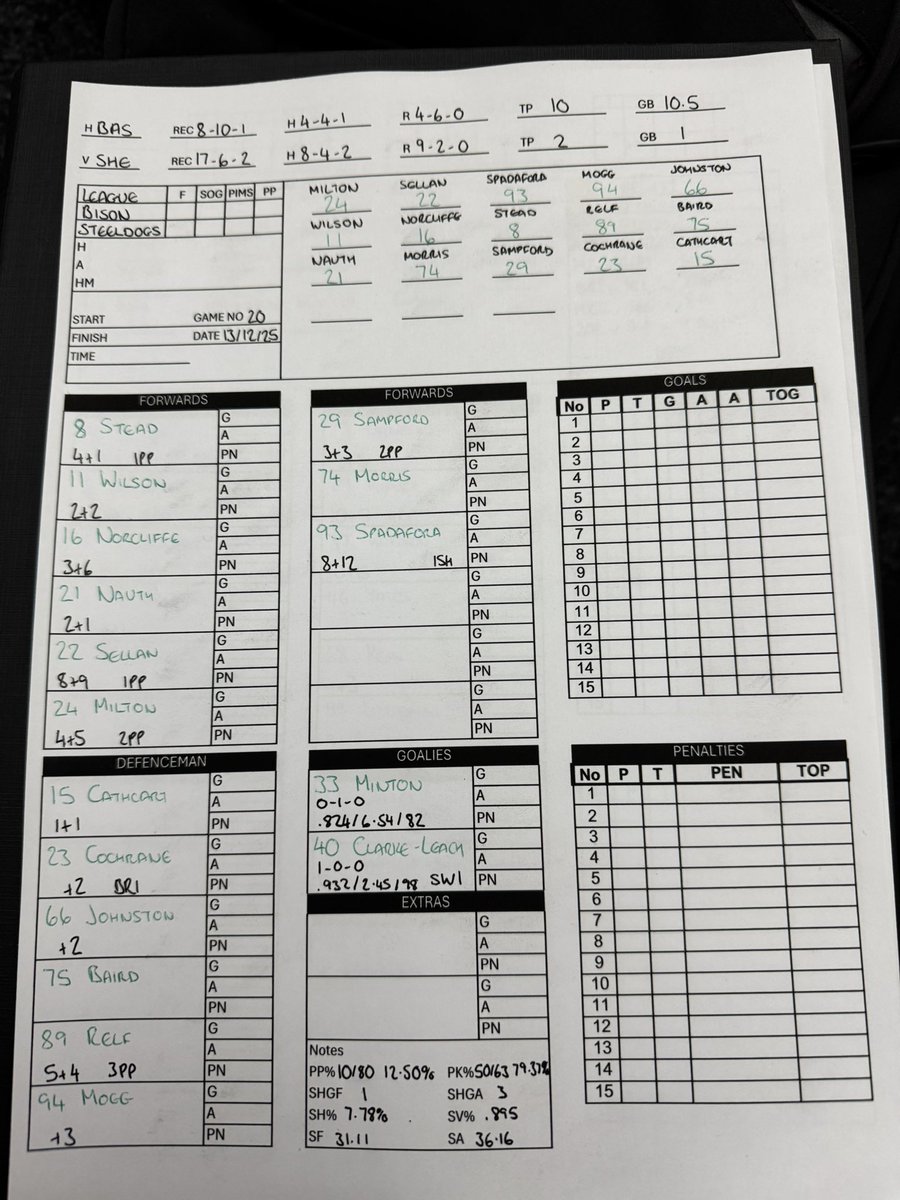 H BAS REC 8-10-1 H 4-4-1 R 4-6-0 TP 10 GB 10.5
V SHE REC 17-6-2 H 8-4-2 R 9-2-0 TP 2 GB 1
LEAGUE F SOG PIMS PP
BISON
STEELDOGS
H
A
HM
START GAME NO 20
FINISH DATE 13/12/25
TIME
MILTON SELLAN SPADAFORA MOGG JOHNSTON
24 22 93 94 66
WILSON NORCLIFFE STEAD RELF BAIRD
11 16 8 89 75
NAUTH MORRIS SAMPFORD COCHRANE CATHCART
21 74 29 23 15
FORWARDS
8 STEAD G
A
4+1 1PP PN
11 WILSON G
A
2+2 PN
16 NORCLIFFE G
A
3+6 PN
21 NAUTH G
A
2+1 PN
22 SELLAN G
A
8+9 1PP PN
24 MILTON G
A
4+5 2PP PN
DEFENCEMAN
15 CATHCART G
A
1+1 PN
23 COCHRANE G
A
+2 BRI PN
66 JOHNSTON G
A
+2 PN
75 BAIRD G
A
PN
89 RELF G
A
5+4 3PP PN
94 MOGG G
A
+3 PN
FORWARDS
29 SAMPFORD G
A
3+3 2PP PN
74 MORRIS G
A
PN
93 SPADAFORA G
A
8+12 1SH PN
G
A
PN
G
A
PN
G
A
PN
GOALIES
33 MINTON G
0-1-0 A
.824/6.54/82 PN
40 CLARKE-LEACH G
1-0-0 A
.932/2.45/98 SWI PN
EXTRAS
G
A
PN
G
A
PN
Notes
PP% 10/80 12.50% PK% 50/63 79.37%
SHGF 1 SHGA 3
SH% 7.78% SV% .895
SF 31.11 SA 36.16
GOALS
No P T G A A TOG
1
2
3
4
5
6
7
8
9
10
11
12
13
14
15
PENALTIES
No P T PEN TOP
1
2
3
4
5
6
7
8
9
10
11
12
13
14
15